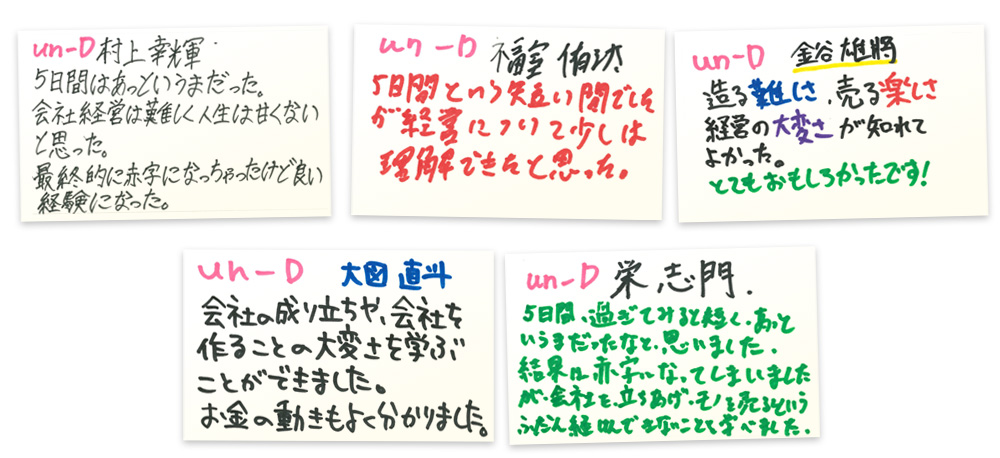 un-D 村上 幸輝
5日間はあっというまだった。
会社経営は難しく人生は甘くない
と思った。
最終的に赤字になっちゃったけど良い
経験になった。
un-D 福室 侑
5日間という短い間でした
が経営について少しは
理解できたと思った。
un-D 金谷 雄將
造る難しさ、売る楽しさ
経営の大変さが知れて
よかった。
とてもおもしろかったです!
un-D 大図 直斗
会社の成り立ちや、会社を
作ることの大変さを学ぶ
ことができました。
お金の動きもよく分かりました。
un-D 栄 志門.
5日間、過ぎてみると短く、あっと
いうまだったなと、思いました.
結果は赤字になってしまいました
が、会社を、立ちあげ、モノを売るという
ふだん経けんできないことを学べました.